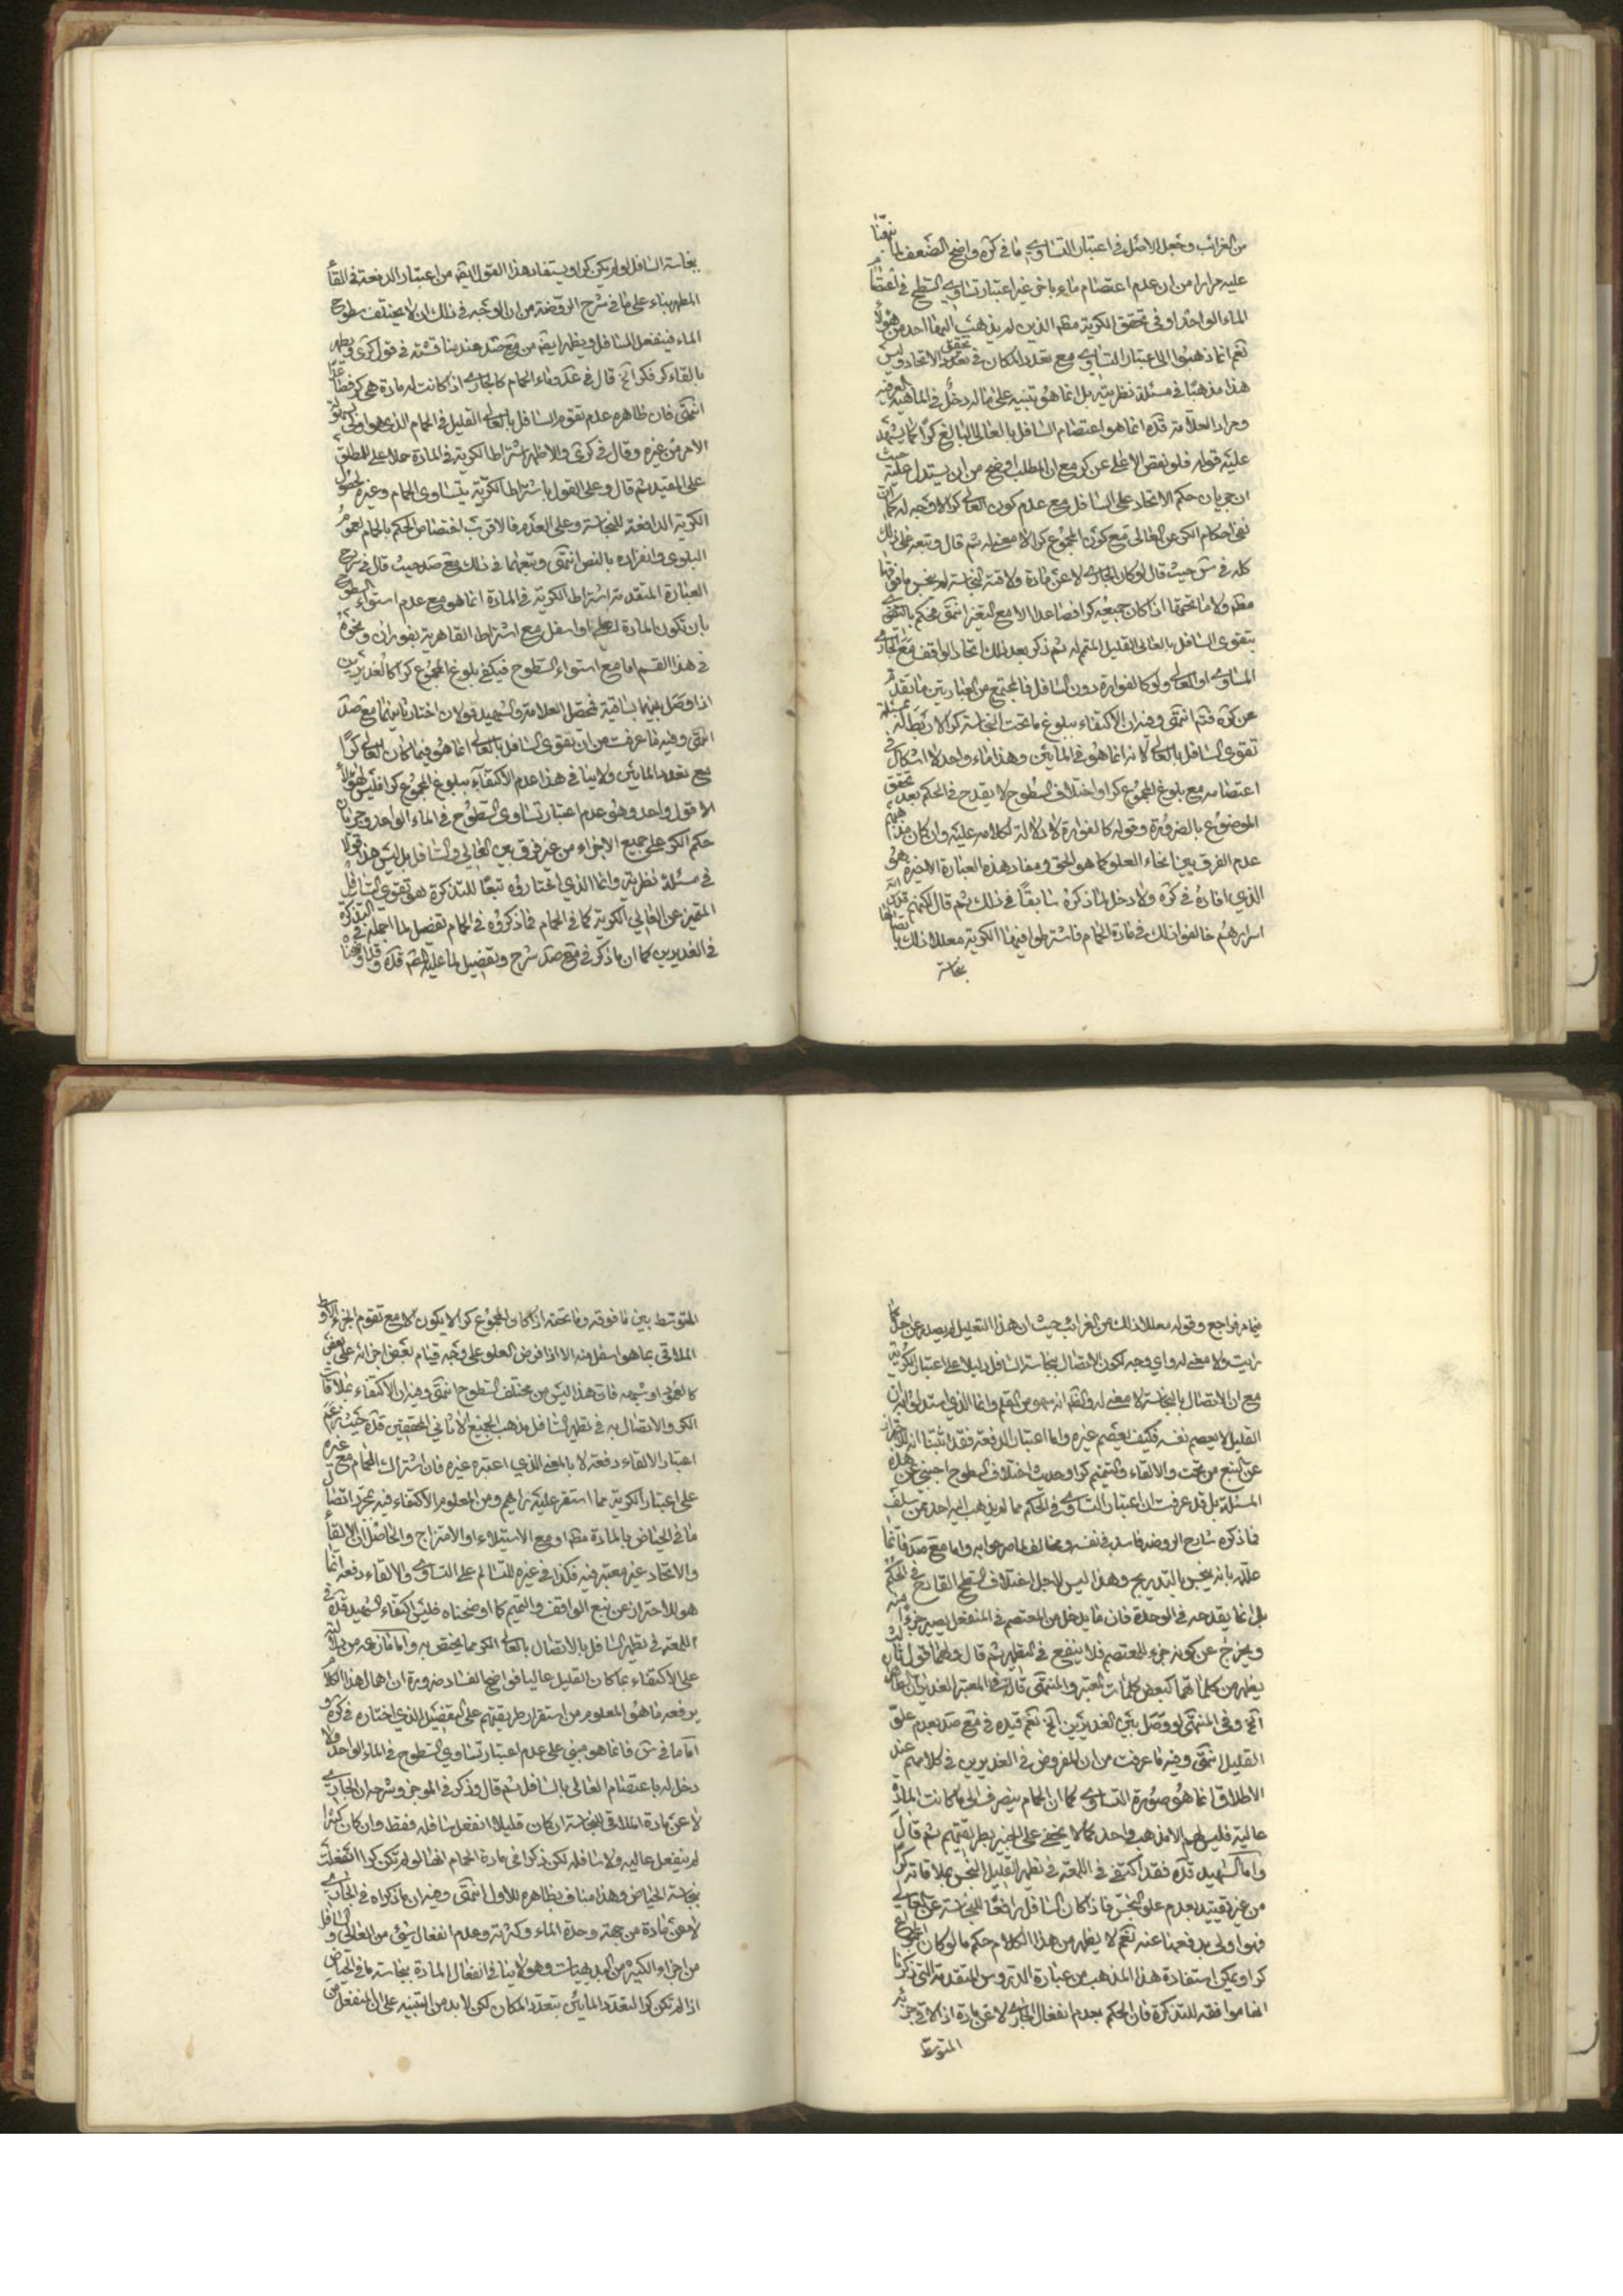 من الغرائب وجعل الاصل في اعتبار التساوي ما في كره واضح الضعف لما نبهنا
عليه مرارا من ان عدم اعتصام ماء باخر غير اعتبار تساوي السطح في اعتصام
الماء الواحد او في تحقق الكرية مطم الذين لم يذهب اليهما احد من هؤلاء
نعم انما ذهبوا الى اعتبار التساوي مع تعدد المكان في تحقق الاتحاد وليس
هذا مذهبا في مسئلة نظرية بل انما هو تنبيه على ماله دخل في الماهية العرفية
ومراد العلامة قده انما هو اعتصام السافل بالعالي البالغ كرا كما يشهد
عليه قوله فلو نقص الاعلى عن كر مع ان المطلب اوضح من ان يستدل عليه حيث
ان جريان حكم الاتحاد على السافل مع عدم كون العالي كرا لا وجه له كما ان
نفي احكام الكر عن العالي مع كون المجموع كرا لا معنى له ثم قال وتبعه على ذلك
كله في ش حيث قال لو كان الجاري لا عن مادة ولاقته النجاسة لم ينجس ما فوقها
مطم ولا ما تحتها اذا كان جميعه كرا فصاعدا الا مع التغير انتهى فحكم بالتقوى
بتقوى السافل بالعالي القليل المتمم له ثم ذكر بعد ذلك اتحاد الواقف مع الجاري
المساوي او العالي ولو كالفوارة دون السافل فالمجتمع من العبارتين ما تقدم
عن كره فتم انتهى وفيه ان الاكتفاء ببلوغ ما تحت النجاسة كرا لا ربط له بمسئلة
تقوى السافل بالعالي لانه انما هو في المائين وهذا ماء واحد لا اشكال في
اعتصامه مع بلوغ المجموع كرا واختلاف السطوح لا يقدح في الحكم بعد تحقق
الموضوع بالضرورة وقوله كالفوارة لا دلالة لكلامه عليه وان كان مذهبهم
عدم الفرق بين انحاء العلو كما هو الحق ومفاد هذه العبارة الاخيرة هو
الذي افاده في كره ولا دخل لما ذكره سابقا في ذلك ثم قال لكنهم قدس الله
اسرارهم خالفوا ذلك في مادة الحمام فاشترطوا فيها الكرية معللا ذلك باتصالها
بنجاسة
بنجاسة السافل لو لم يكن كرا ويستفاد هذا القول ايضا من اعتبار الدفعة في القاء
المطهر بناء على ما في شرح الروضة من ان الوجه في ذلك ان لا يختلف سطوح
الماء فينفعل السافل ويظهر ايضه من مع صد عند مناقشته في قول كرى ويطهر
بالقاء كر فكر الخ قال في عد وماء الحمام كالجاري اذا كانت له مادة هي كر فصاعدا
انتهى فان ظاهره عدم تقوم السافل بالعالي القليل في الحمام الذي هو اولى بسهولة
الامر من غيره وقال في كرى والاظهر اشتراط الكرية في المادة حملا على المطلق
على المقيد ثم قال وعلى القول باشتراط الكرية يتساوى الحمام وغيره لحصول
الكرية الدافعة للنجاسة وعلى العدم فالاقرب اختصاص الحكم بالحمام لعموم
البلوى وانفراده بالنص انتهى وتبعهما في ذلك مع صد حيث قال في شرح
العبارة المتقدمة اشتراط الكرية في المادة انما هو مع عدم استواء السطوح
بان تكون المادة اعلى او اسفل مع اشتراط القاهرية بفوران ونحوه
في هذا القسم اما مع استواء السطوح فيكفي بلوغ المجموع كرا كالغديرين
اذا وصل بينهما بساقية فحصل للعلامة والشهيد قولان اختار ثانيهما مع صد
انتهى وفيه ما عرفت من ان تقوى السافل بالعالي انما هو فيما كان العالي كرا
مع تعدد المائين ولا ينافي هذا عدم الاكتفاء ببلوغ المجموع كرا فليس لهؤلاء
الا قول واحد وهو عدم اعتبار تساوي السطوح في الماء الواحد وجريان
حكم الكر على جميع الاجزاء من غير فرق بين العالي والسافل بل ليس هذا قولا
في مسئلة نظرية وانما الذي اختاروه تبعا للتذكرة هو تقوى السافل
المتميز عن العالي الكرية كما في الحمام فما ذكروه في الحمام تفصيل لما اجمله في التذكرة
في الغديرين كما ان ما ذكره في مع صد شرح وتفصيل لما عليه الشه قده
ضامه فراجع وقوله معللا ذلك من الغرائب حيث ان هذا التعليل لم يصدر عن احد كما
رايت ولا معنى له واي وجه لكون الاتصال بنجاسة السافل دليلا على اعتبار الكرية
مع ان الاتصال بالنجاسة لا معنى له والظ انه سهو من القلم وانما الذي استدلوا به ان
القليل لا يعصم نفسه فكيف يعصم غيره واما اعتبار الدفعة فقد اثبتنا انه للاحتراز
عن النبع من تحت والالقاء والتتميم كرا وحديث اختلاف السطوح اجنبي عن هذه
المسئلة بل قد عرفت ان اعتبار التساوي في الحكم مما لم يذهب اليه احد ممن سلف
فما ذكره شارح الروضة فاسد في نفسه ومخالف لما صرحوا به واما مع صد فانما
علله بانه ينجس بالتدريج وهذا ليس لاجل اختلاف السطح القادح في الحكم
بل انما يقدحه في الوحدة فان ما يدخل من المعتصم في المنفعل يصير جزءا منه
ويخرج عن كونه جزء المعتصم فلا ينفع في التطهير ثم قال ولهما قول ثالث
يظهر من كلماتهما كبعض كلمات المعتبر والمنتهى قال في المعتبر الغديران الطاهران
الخ وفي المنتهى لو وصل بين الغديرين الخ نعم قيده في مع صد بعدم علو
القليل انتهى وفيه ما عرفت من ان المفروض في الغديرين في كلامهم عند
الاطلاق انما هو صورة التساوي كما ان الحمام ينصرف الى ما كانت المادة
عالية فليس لهم الا مذهب واحد كما لا يخفى على الخبير بطريقتهم ثم قال
واما الشهيد قده فقد اكتفى في اللمعة في تطهير القليل النجس بملاقاته كر
من غير تقييد بعدم علو النجس فاذا كان السافل رافعا للنجاسة عن العالي
فهو اولى بدفعها عنه نعم لا يظهر من هذا الكلام حكم ما لو كان المجموع
كرا ويمكن استفادة هذا المذهب من عبارة الدروس المتقدمة التي ذكرنا
انها موافقة للتذكرة فان الحكم بعدم انفعال الجاري لا عن مادة اذا لاقى جزئه
المتوسط
المتوسط بين ما فوقه وما تحته اذا كان المجموع كرا لا يكون الا مع تقوم الجزء الاوسط
الملاقي بما هو اسفل منه الا اذا فرض العلو على وجه قيام بعض اجزائه على بعض
كالعمود او شبهه فان هذا ليس من مختلف السطوح انتهى وفيه ان الاكتفاء بملاقات
الكر والاتصال به في تطهير السافل مذهب الجميع الا ثاني المحققين قده حيث زعم
اعتبار الالقاء دفعة لا بالمعنى الذي اعتبره غيره فان اشتراك الحمام مع غيره
على اعتبار الكرية مما استقر عليه رايهم ومن المعلوم الاكتفاء فيه بمجرد اتصال
ما في الحياض بالمادة مطم او مع الاستيلاء او الامتزاج والحاصل ان الالقاء
والاتحاد غير معتبر فيه فكذا في غيره للتسالم على التساوي والالقاء دفعة انما
هو للاحتراز عن نبع الواقف والتتميم كما اوضحناه فليس اكتفاء الشهيد قده في
اللمعة في تطهير السافل بالاتصال بالعالي الكر مما يختص به واما مازعمه من دلالته
على الاكتفاء بما كان القليل عاليا فواضح الفساد ضرورة ان اهمال هذا الكلام
يرفعه ما هو المعلوم من استقرار طريقتهم على التفضيل الذي اختاره في كره و
اما ما في ش فانما هو مبني على عدم اعتبار تساوي السطوح في الماء الواحد ولا
دخل له باعتصام العالي بالسافل ثم قال وذكر في الموجز وشرحه ان الجاري
لا عن مادة الملاقي للنجاسة ان كان قليلا انفعل سافله فقط وان كان كثيرا
لم ينفعل عاليه ولا سافله لكن ذكرا في مادة الحمام انها لو لم تكن كرا انفعلت
بنجاسة الحياض وهذا مناف بظاهره للاول انتهى وفيه ان ما ذكراه في الجاري
لا عن مادة من جهة وحدة الماء وكثرته وعدم انفعال شئ من العالي والسافل
من اجزاء الكثير من البديهيات وهو لا ينافي انفعال المادة بنجاسة ما في الحياض
اذا لم تكن كرا لتعدد المائين بتعدد المكان لكن لا بد من التنبيه على ان المنفعل